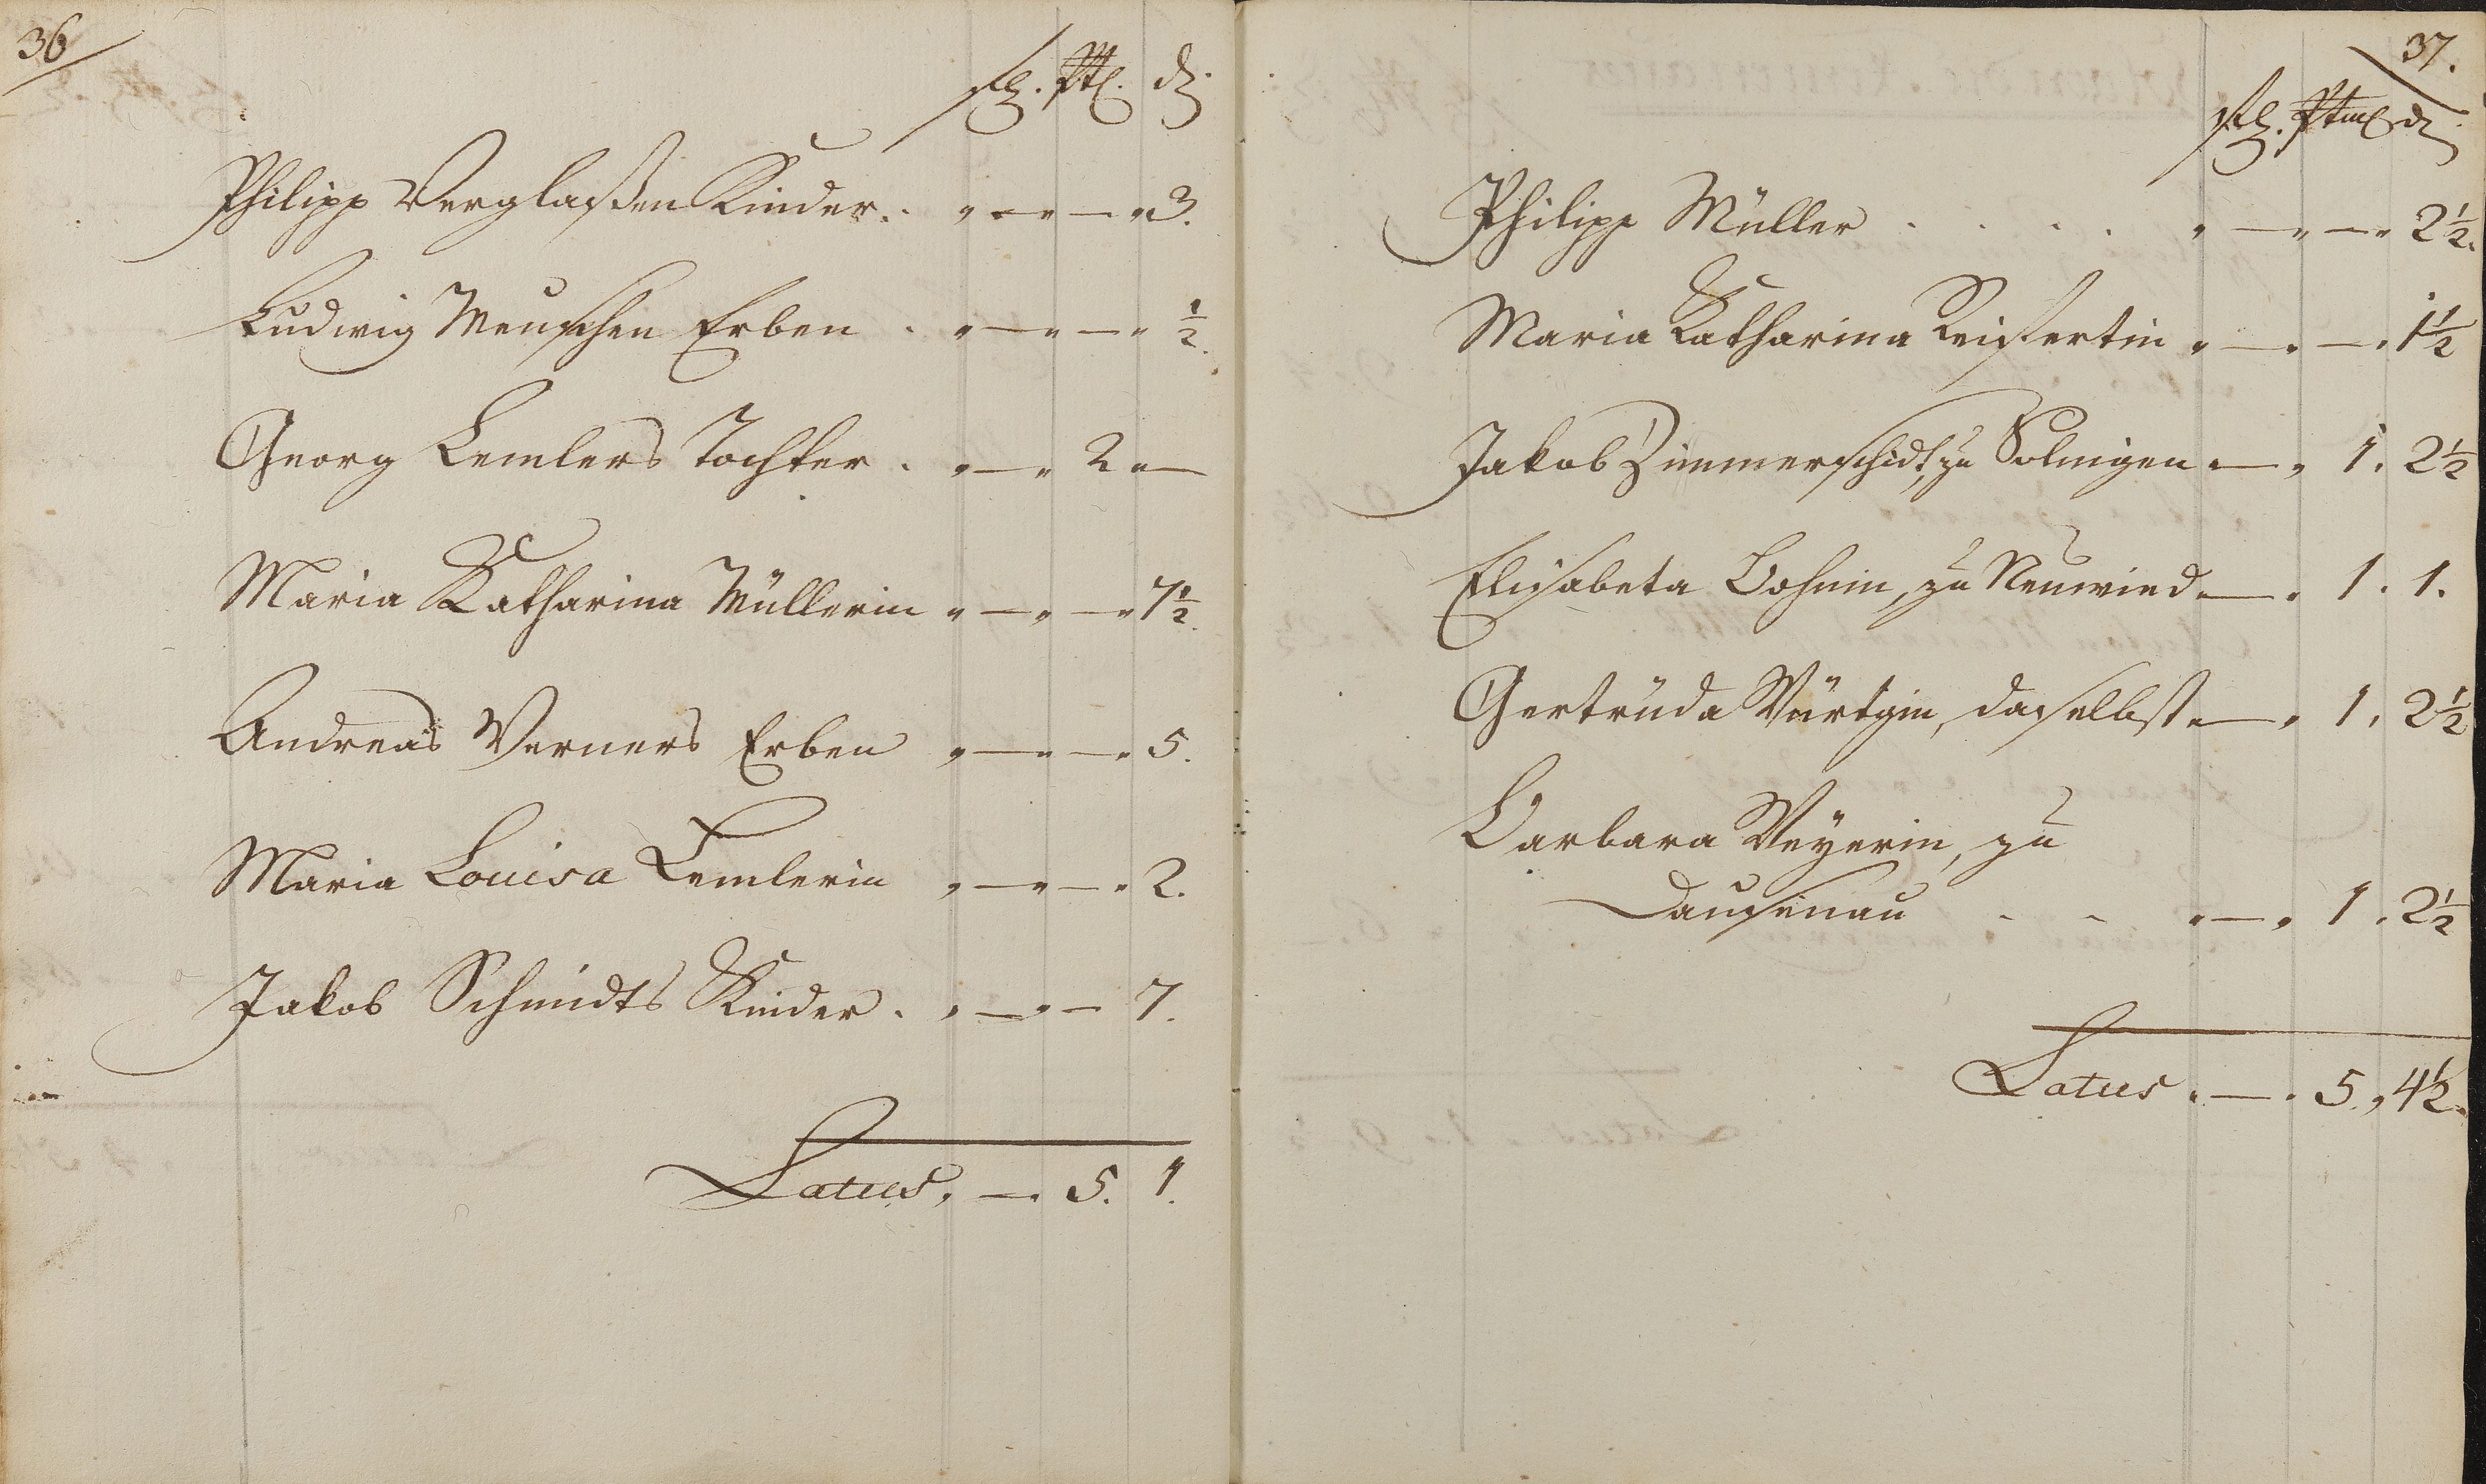 36
fl. Stl. d.
Philipp Verglaßen Kinder . . „ — „ — „ 3.
Ludwig Menschen Erben . „ — „ — „ ½.
Georg Lemlers Tochter . „ — „ 2 „ —
Maria Katharina Müllerin „ — „ — „ 7½.
Andreas Werners Erben „ — „ — „ 5.
Maria Louisa Lemlerin „ — „ — „ 2.
Jakob Schmidts Kinder . „ — „ — 7.
Latus, — . 5. 1.
37.
Philipp Müller . . . . „ — „ — „ 2½.
Maria Katharina Reifertin „ — „ — „ 1½
Jakob Zimmerschidt, zu Solingen „ — „ 1. 2½
Elisabeta Bohnin, zu Neuwied „ — „ 1. 1.
Gertruda Würtgin, daselbst „ — „ 1. 2½
Barbara Weyerin, zu
Dausenau - - „ — „ 1. 2½
Latus „ — „ 5 „ 4½.